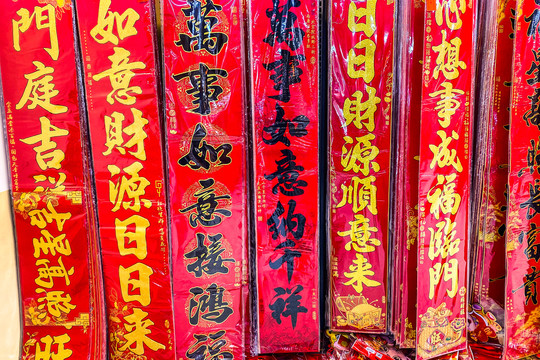 門庭吉祥
如意財源日日來
萬事如意接鴻福
萬事如意納千祥
日日財源順意來
心想事成福臨門